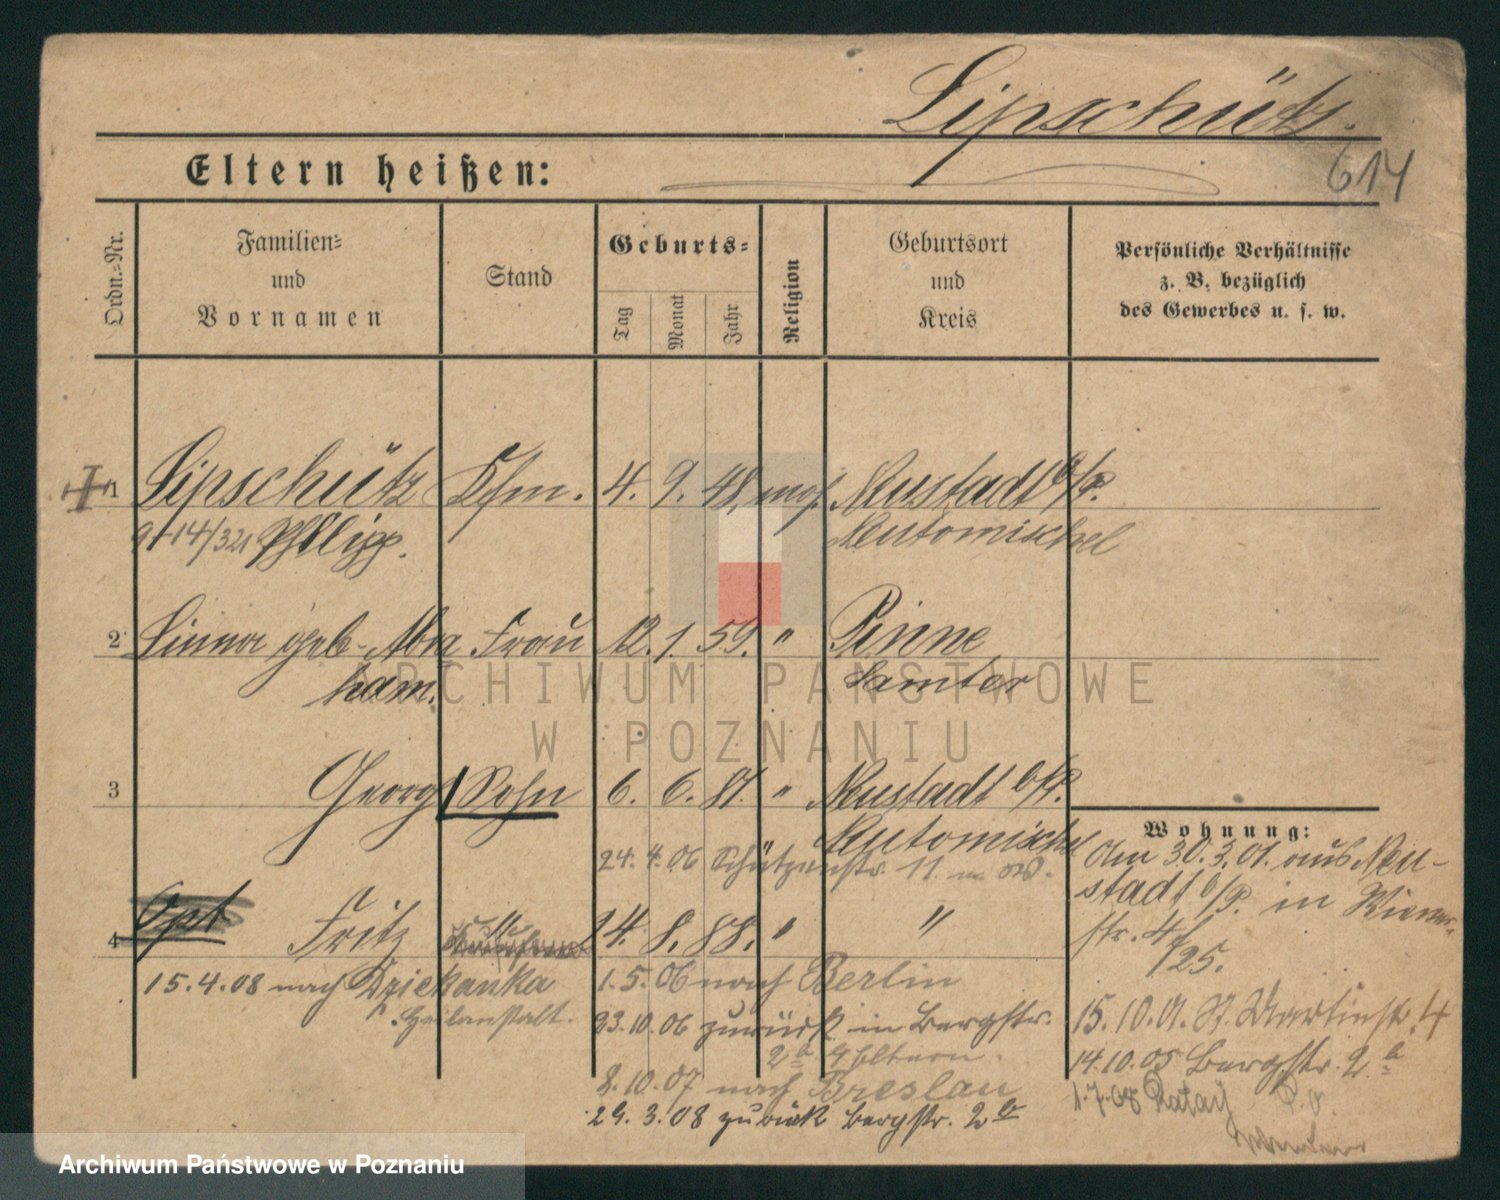 Lipschütz.
614
Eltern heißen:
Ordn.-Nr.
Familien-
und
Vornamen
Stand
Geburts-
Tag
Monat
Jahr
Religion
Geburtsort
und
Kreis
Persönliche Verhältnisse
z. B. bezüglich
des Gewerbes u. s. w.
1 Lipschütz Kfm. 4. 9. 48. mos. Neustadt b/P.
14/321 Philipp. Neutomischel
2 Linna geb. Abra Frau 12. 1. 59. " Pinne
ham. Samter
3 Georg Sohn 6. 6. 81. " Neustadt b/P.
Neutomischel
24. 4. 06 Schützenstr. 11
Wohnung:
Am 30.3.01. aus Neu-
stadt b/P. in Wiener-
str. 4/
125.
Opt
4 Fritz " 24. 8. 88. " "
15.4.08 nach Dziekanka
Heilanstalt.
1.5.06 nach Berlin
23.10.06 zurück in Bergstr.
2a Eltern.
8.10.07 nach Breslau
29.3.08 zurück Bergstr. 2b
15.10.01. St. Martinstr. 4
14.10.05 Bergstr. 2b
1.7.08 Rataj
ARCHIWUM PAŃSTWOWE
W POZNANIU
Archiwum Państwowe w Poznaniu